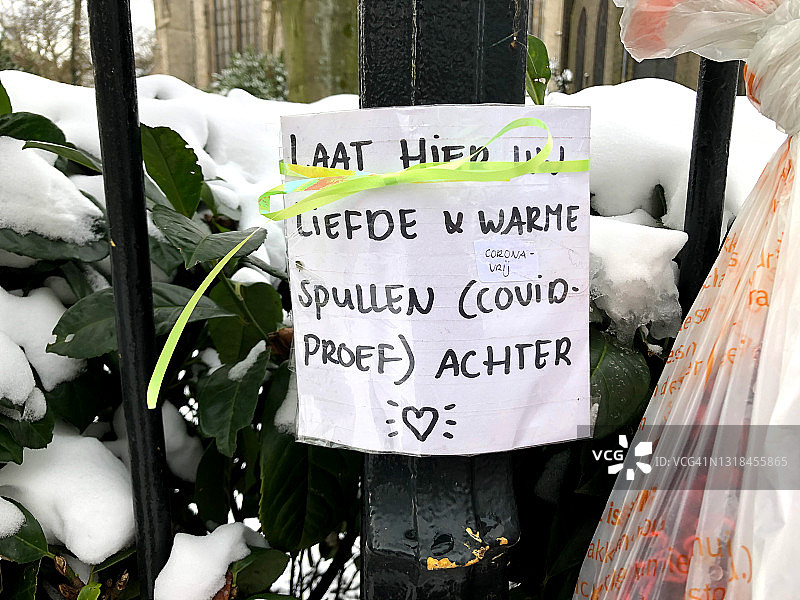 LAAT HIER UW
LIEFDE & WARME
CORONA-
VRIJ
SPULLEN (COVID-
PROEF) ACHTER
VCG
ID: VCG41N1318455865